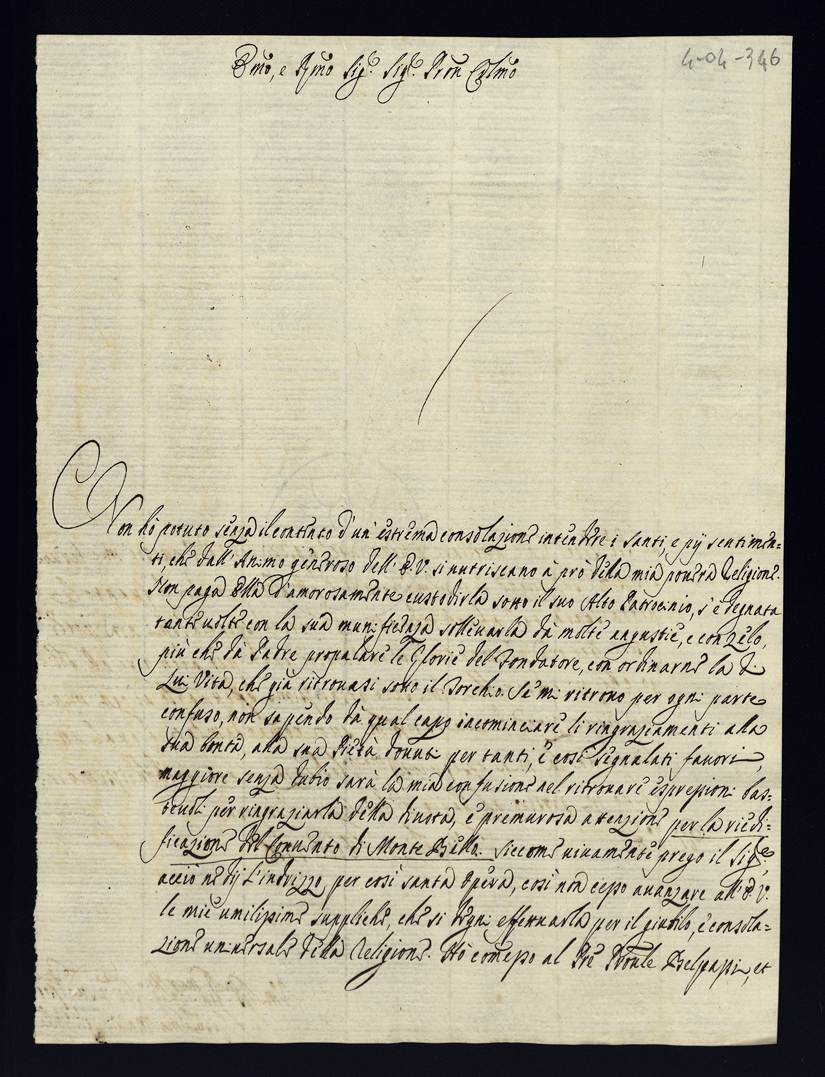 4-04-346
Emo, e Rmo Sig.r Sig.r Pron Colmo
Non hò potuto senza il contento d'un'estrema consolazione intendere i santi, e pij sentimen=
ti, che dall'Animo generoso dell'E.V. si nutriscano à prò della mia povera Religione.
Non paga Ella d'amorosamente custodirla sotto il suo Alto Patrocinio, s'è degnata
tante volte con la sua munificenza sollevarla dà molte angustie, e con zelo,
più che dà Padre propalare le Glorie del Fondatore, con ordinarne la di
Lui Vita, che già ritrovasi sotto il Torchio. Se mi ritrovo per ogni parte
confuso, non sapendo dà qual capo incominciare li ringraziamenti alla
sua bontà, alla sua Pietà dovuti per tanti, e così segnalati favori,
maggiore senza dubio sarà la mia confusione nel ritrovare espressioni bas=
tevoli per ringraziarla della divota, e premurosa attenzione per la riedi=
ficazione del Convento di Monte Bello. Siccome vivamente prego il Sig.re
acciò ne dij l'indrizzo per così santa Opera, così non cesso avanzare all'E.V.
le mie umilissime suppliche, che si degni effettuarla per il giubilo, e consola=
zione universale della Religione. Hò comesso al Pre Belpassi, et